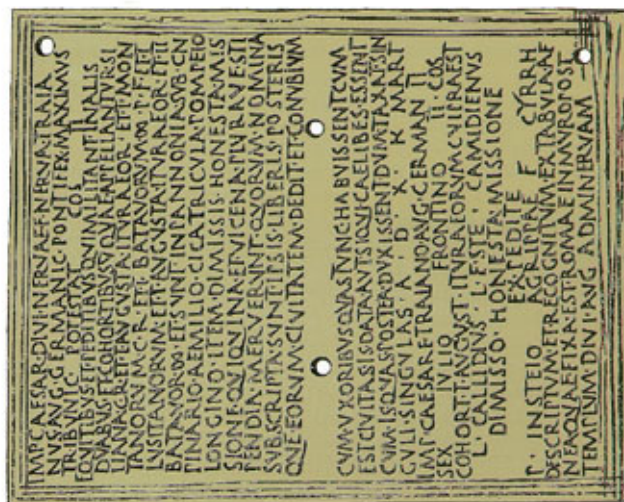 IMP CAESAR DIVI NERVAE F NERVA TRAIA
NVS AVG GERMANIC PONTIFEX MAXIMVS
TRIBVNIC POTESTAT COS II
EQVITIBVS ET PEDITIBVS QVI MILITANT IN ALIS
DVABVS ET COHORTIBVS QVAE APPELLANTVR SI
LIANA C R ET I AVGVSTA ITVRAEOR ET I MON
TANORVM C R ET I BATAVORVM ∞ P F ET I
LVSITANORVM ET I AVGVSTA ITVRAEOR ET II
BATAVOR ∞ ET SVNT IN PANNONIA SVB CN
PINARIO AEMILIO CICATRICVLA POMPEIO
LONGINO ITEM DIMISSIS HONESTA MIS
SIONE QVI QVINA ET VICENA PLVRAVE STI
PENDIA MERVERVNT QVORVM NOMINA
SVBSCRIPTA SVNT IPSIS LIBERIS POSTERIS
QVE EORVM CIVITATEM DEDIT ET CONVBIVM
CVM VXORIBVS QVAS TVNC HABVISSENT CVM
EST CIVITAS IIS DATA AVT SI QVI CAELIBES ESSENT
CVM IIS QVAS POSTEA DVXISSENT DVMTAXAT SIN
GVLI SINGVLAS A · D · X · K · MART
IMP CAESARE TRAIANO AVG GERMAN II
SEX IVLIO FRONTINO II COS
COHORT I AVGVST ITVRAEORVM CVI PRAEST
L · CALLIDIVS L · F STE · CAMIDIENVS
DIMISSO HONESTA MISSIONE
EX PEDITE
P · INSTEIO AGRIPPAE F CYRRH
DESCRIPTVM ET RECOGNITVM EX TABVLA AE
NEA QVAE FIXA EST ROMAE IN MVRO POST
TEMPLVM DIVI AVG AD MINERVAM